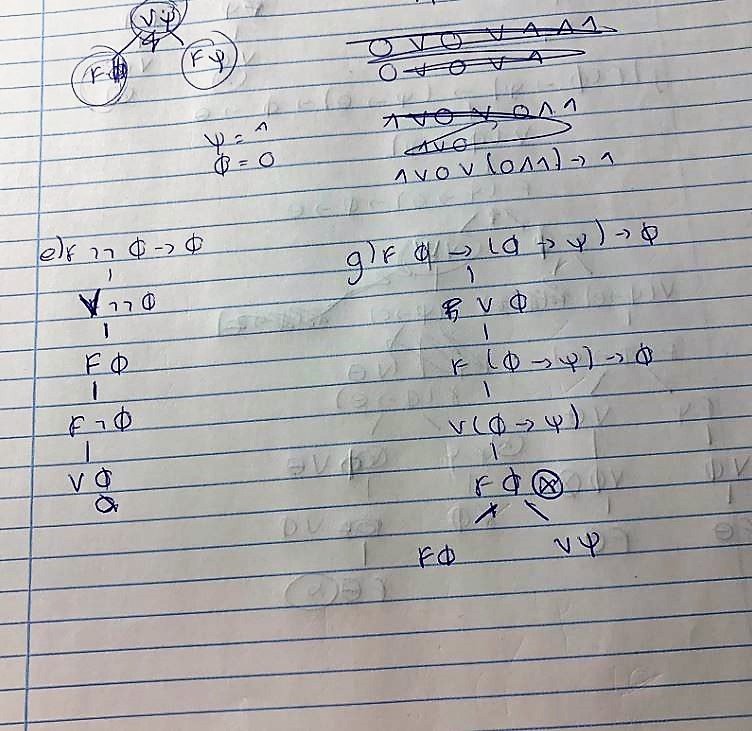 V ψ
F φ
F ψ
0 v 0 v 1 ^ 1
0 v 0 v 1
ψ = 1
φ = 0
1 v 0 v 0 ^ 1
1 v 0
1 v 0 v (0 ^ 1) → 1
e) F ¬¬ φ → φ
V ¬¬ φ
F φ
F ¬ φ
V φ
g) F φ → (φ → ψ) → φ
V φ
F (φ → ψ) → φ
V (φ → ψ)
F φ ⊗
F φ
V ψ